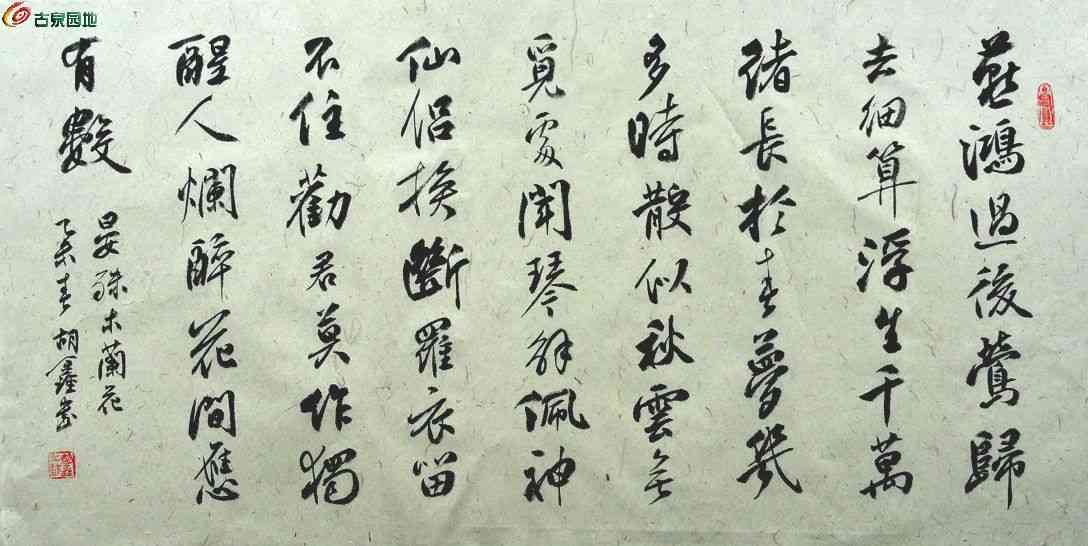 古泉园地
燕鴻過後鶯歸
去細算浮生千萬
緒長於春夢幾
多時散似秋雲無
覓處聞琴解佩神
仙侶挽斷羅衣留
不住勸君莫作獨
醒人爛醉花間應
有數
晏殊木蘭花
乙未春胡鑫